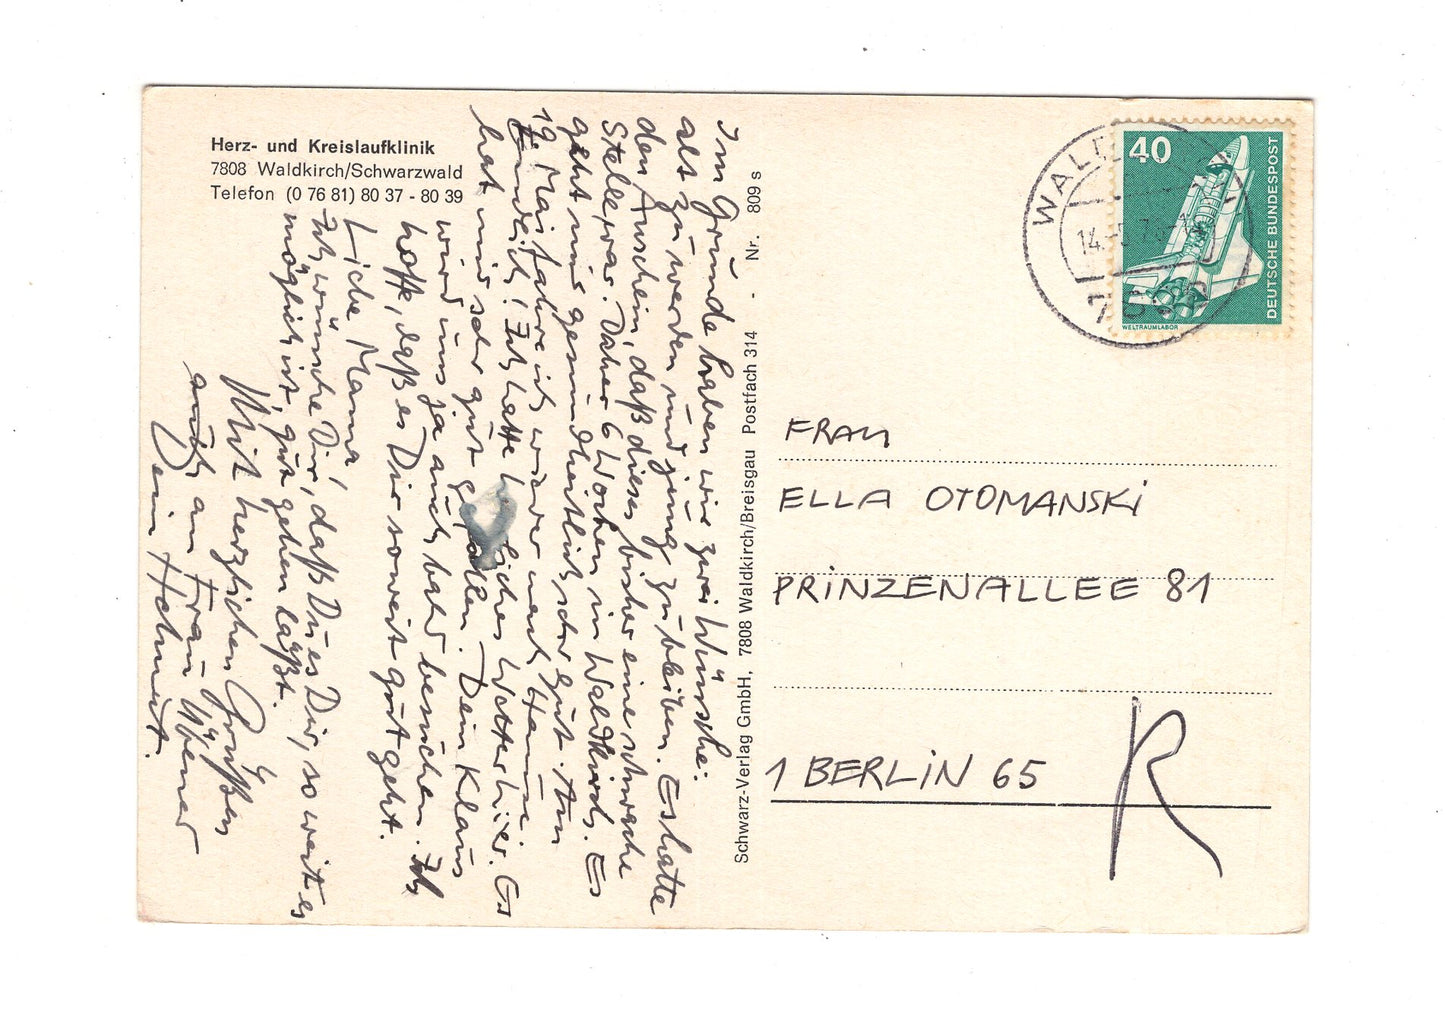 Herz- und Kreislaufklinik
7808 Waldkirch/Schwarzwald
Telefon (0 76 81) 80 37 - 80 39
Im Grunde haben wir zwei Wünsche:
alt zu werden und jung zu bleiben. Es hatte
den Anschein, daß dieses bisher eine schwache
Stelle war. Daher 6 Wochen in Waldkirch. Es
geht mir gesundheitlich sehr gut. Am
19. Mai fahre ich wieder nach
! Ich hatte Wetter hier. Es
hat mir sehr gut gefallen. Dein Klaus
wird uns ja auch bald besuchen. Ich
hoffe, daß es Dir soweit gut geht.
Liebe Mama,
Ich wünsche Dir, daß Du es Dir, so weit es
möglich ist, gut gehen läßt.
Mit herzlichen Grüßen
auch an Frau
Dein Helmut.
Schwarz-Verlag GmbH, 7808 Waldkirch/Breisgau Postfach 314 - Nr. 809 s
40
DEUTSCHE BUNDESPOST
WELTRAUMLABOR
FRAU
ELLA OTOMANSKI
PRINZENALLEE 81
1 BERLIN 65
R